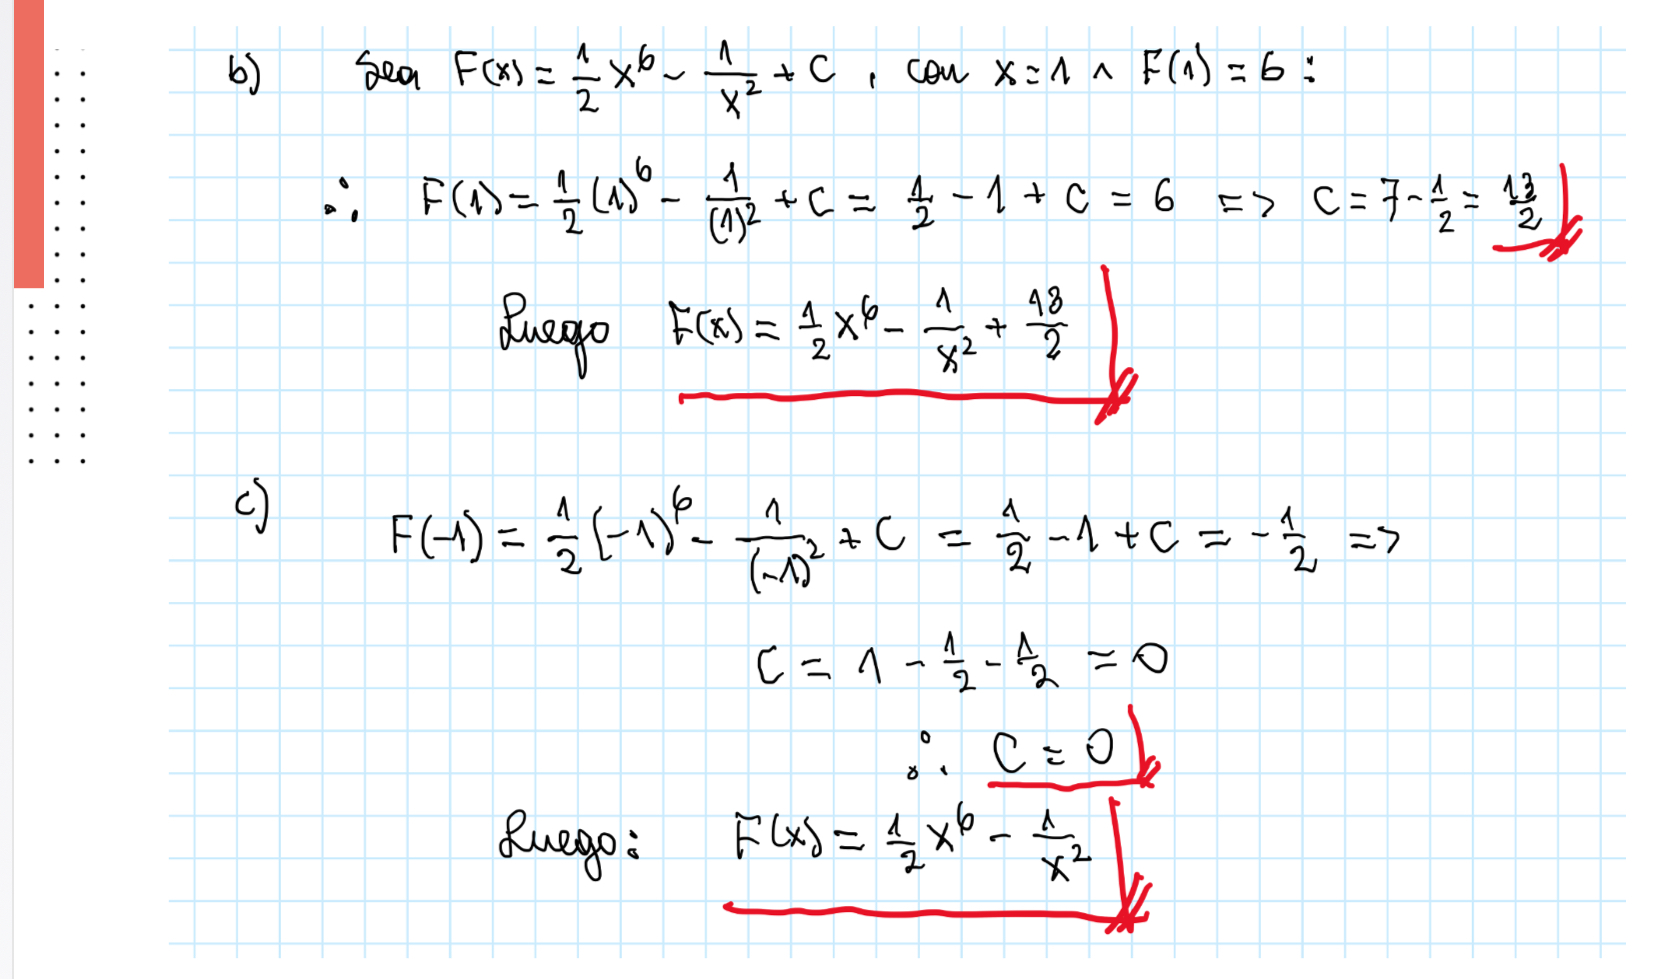 b) Sea F(x) = 1/2 x^6 - 1/x^2 + C , con x = 1 ∧ F(1) = 6 :
∴ F(1) = 1/2 (1)^6 - 1/(1)^2 + C = 1/2 - 1 + C = 6 => C = 7 - 1/2 = 13/2
Luego F(x) = 1/2 x^6 - 1/x^2 + 13/2
c) F(-1) = 1/2 (-1)^6 - 1/(-1)^2 + C = 1/2 - 1 + C = - 1/2 =>
C = 1 - 1/2 - 1/2 = 0
∴ C = 0
Luego: F(x) = 1/2 x^6 - 1/x^2